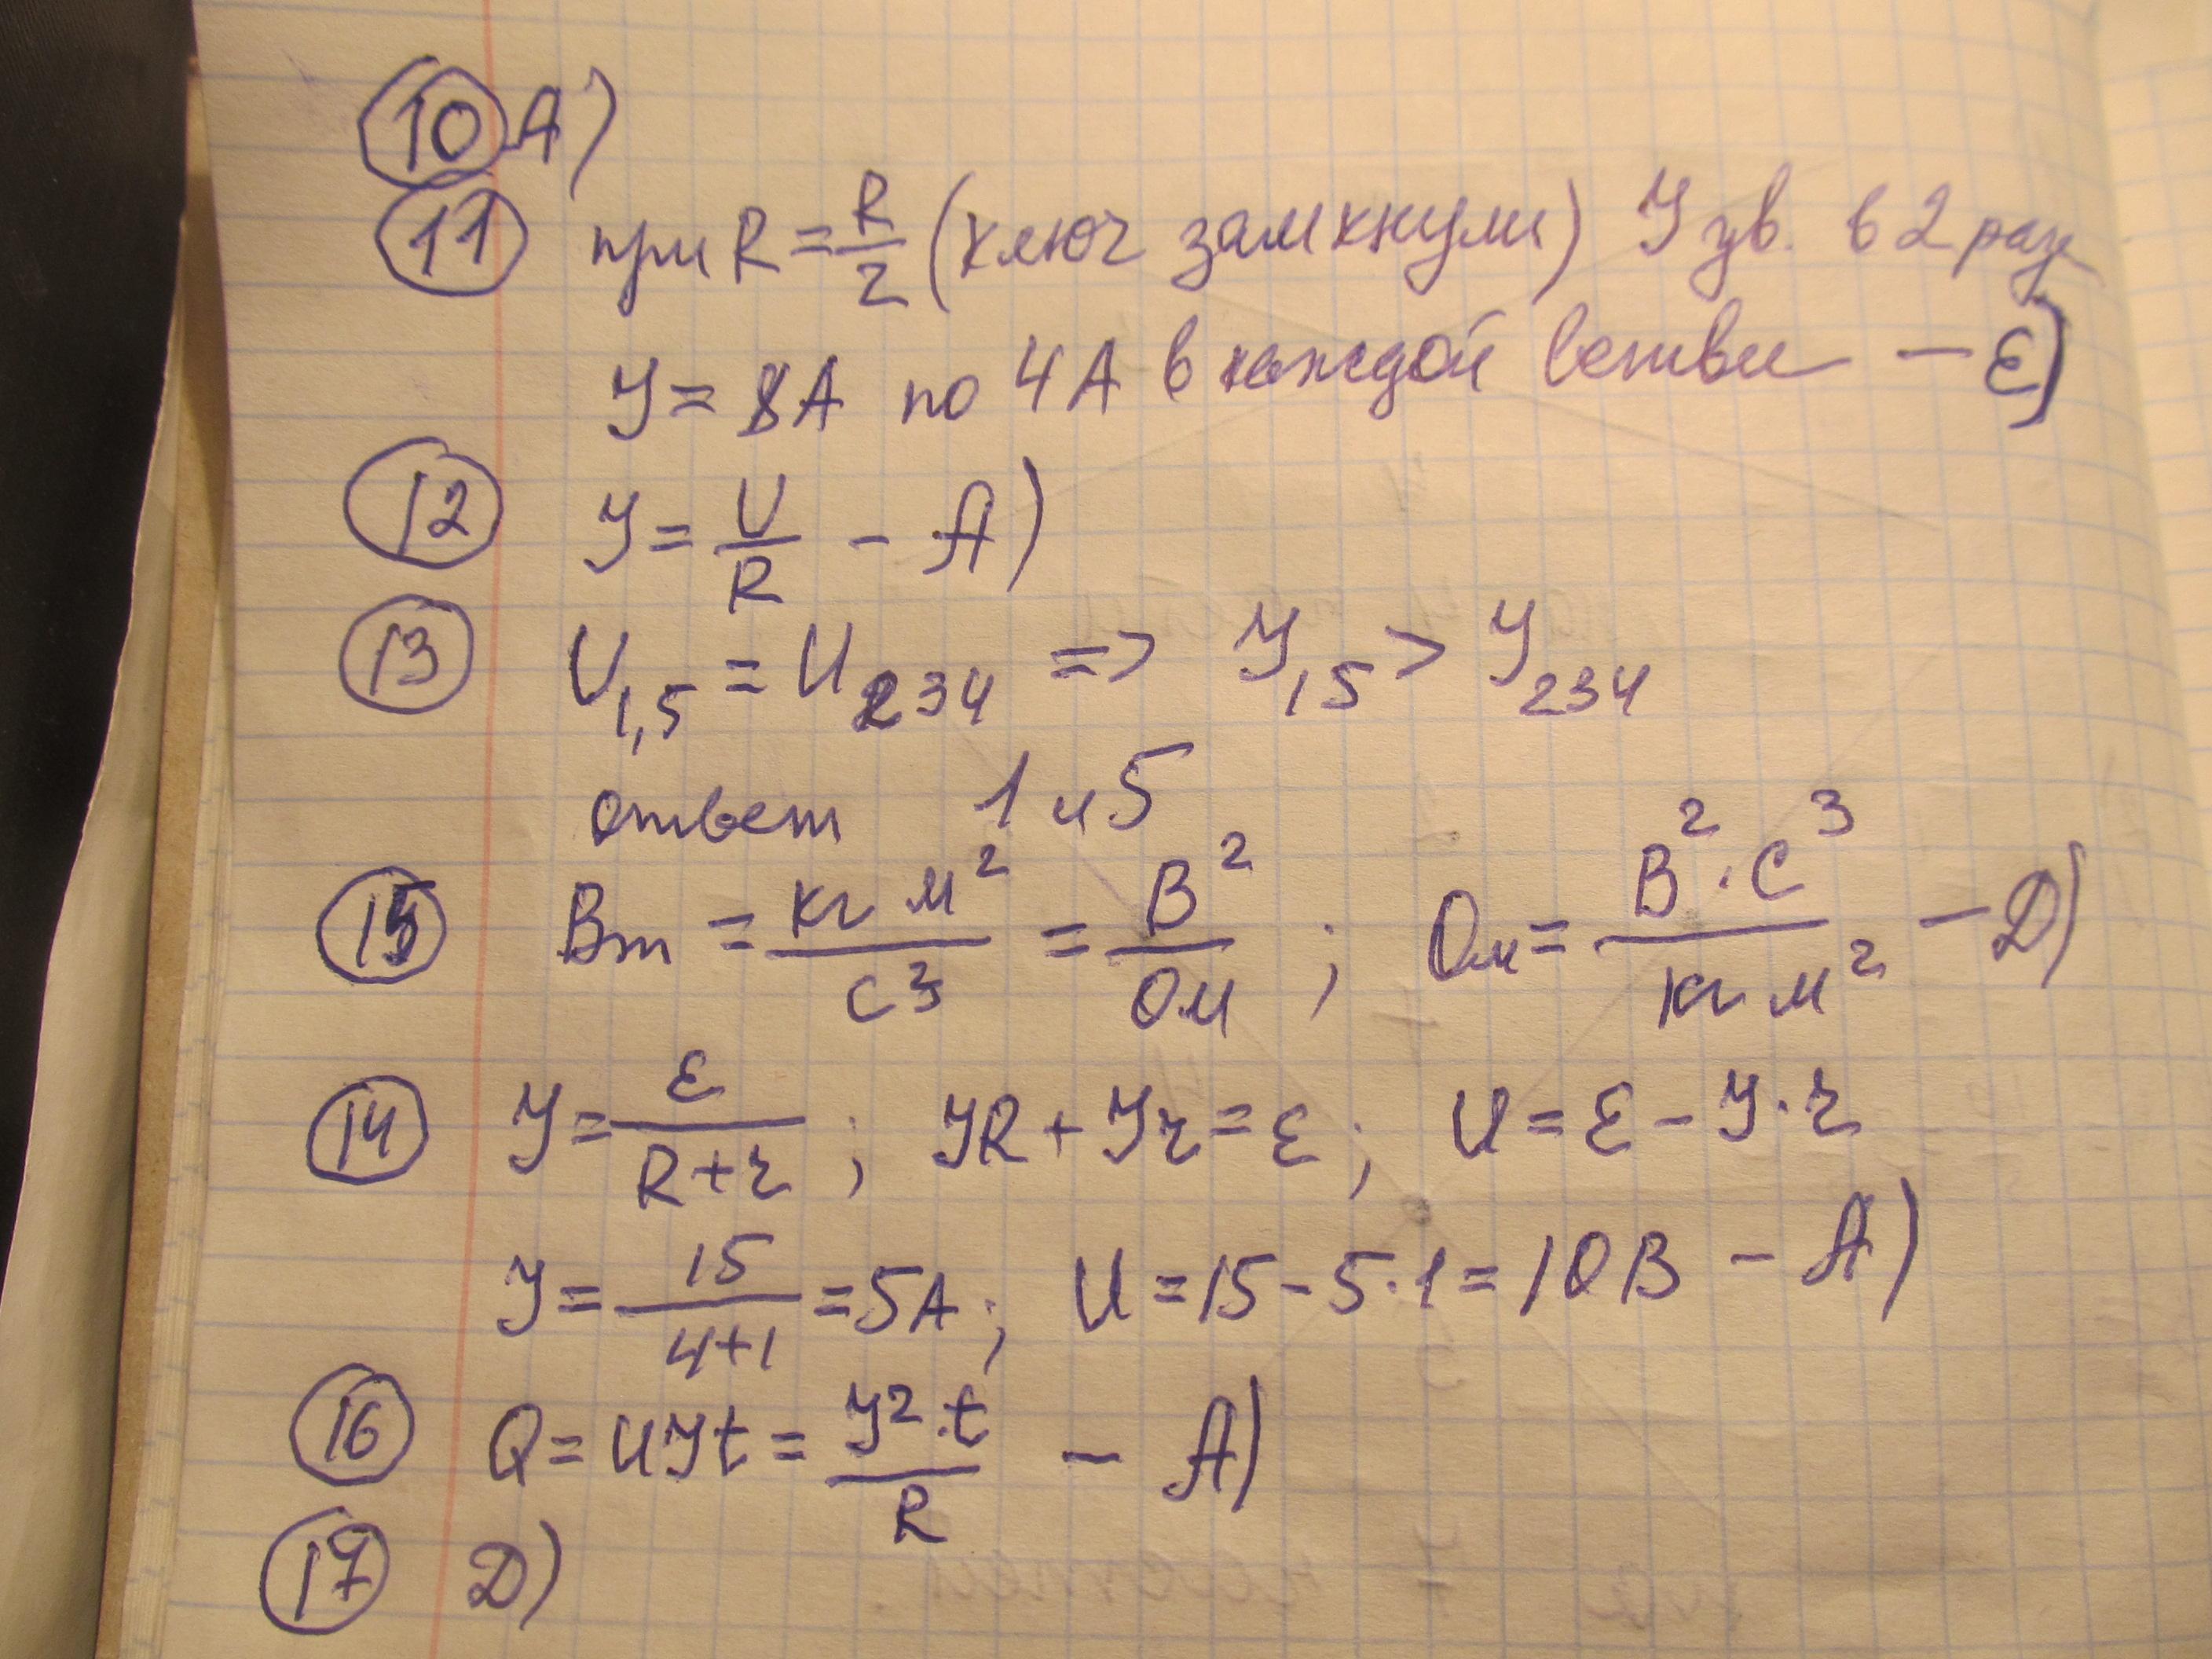 10 A)
11 при R = R/2 (ключ замкнули) У ув. в 2 раз
У = 8А по 4А в каждой ветви – Е)
12 У = U/R – А)
13 U₁,₅ = U₂₃₄ => У₁₅ > У₂₃₄
ответ 1 и 5
15 Вт = кг м²/с³ = В²/Ом ; Ом = В²·с³/кг м² – D)
14 У = ε/(R+r) ; УR + Уr = ε ; U = ε – У·r
У = 15/(4+1) = 5А ; U = 15 – 5·1 = 10В – А)
16 Q = UУt = У²·t/R – А)
17 D)